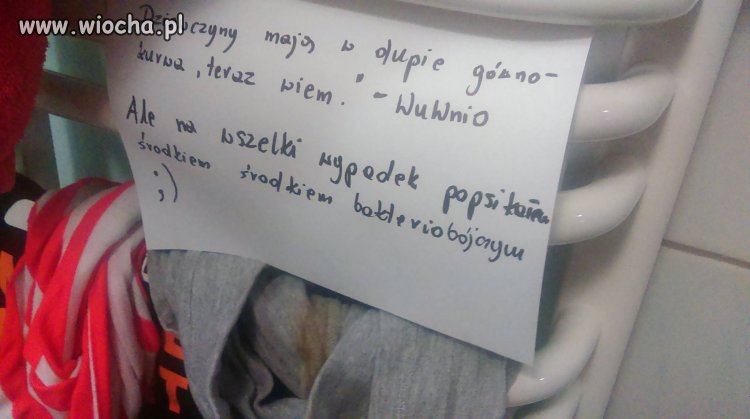 www.wiocha.pl
Dziewczyny mają w dupie gówno-
kurwa, teraz wiem." - WuWnio
Ale na wszelki wypadek popsikałem
środkiem środkiem bakteriobójczym
;)